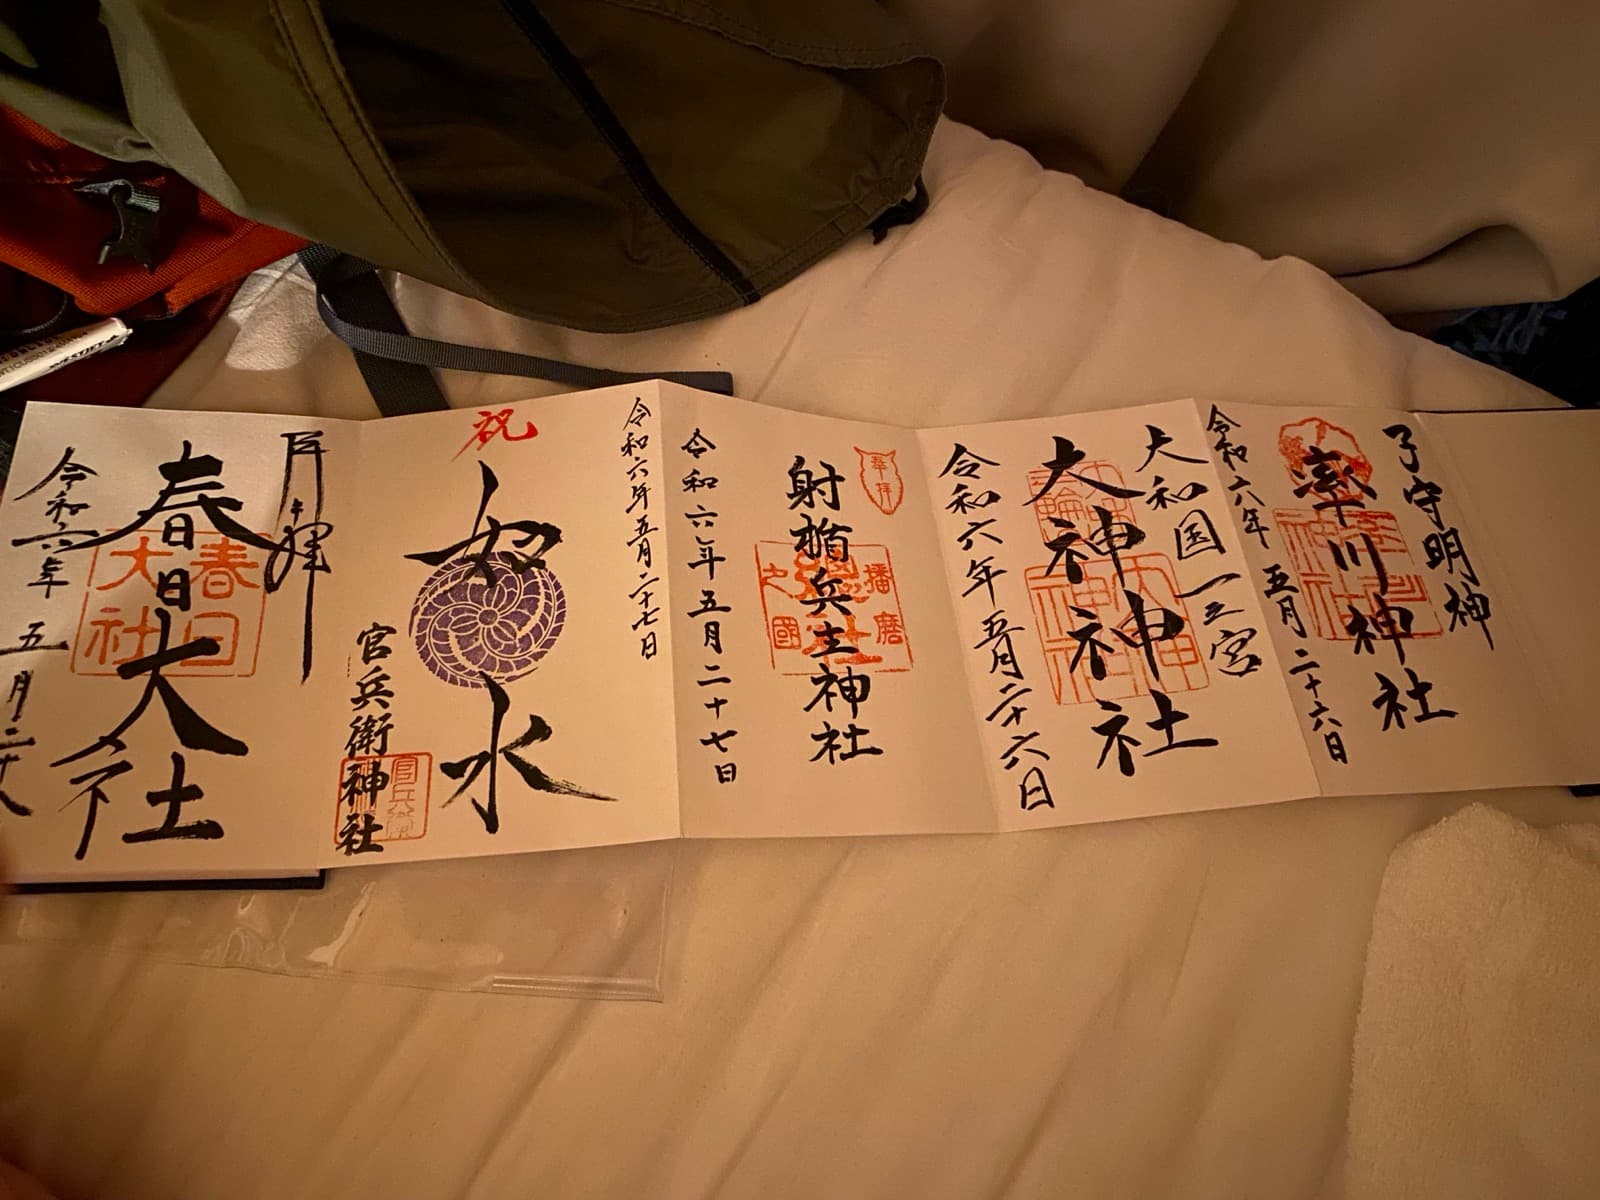 子守明神
率川神社
令和六年 五月二十六日
大和国一之宮
大神神社
令和六年五月二十六日
奉拝
射楯兵主神社
播磨
之國
令和六年五月二十七日
令和六年五月二十七日
祝
如水
官兵衛神社
官兵衛
奉拝
春日大社
春日
大社
令和六年 五月二十